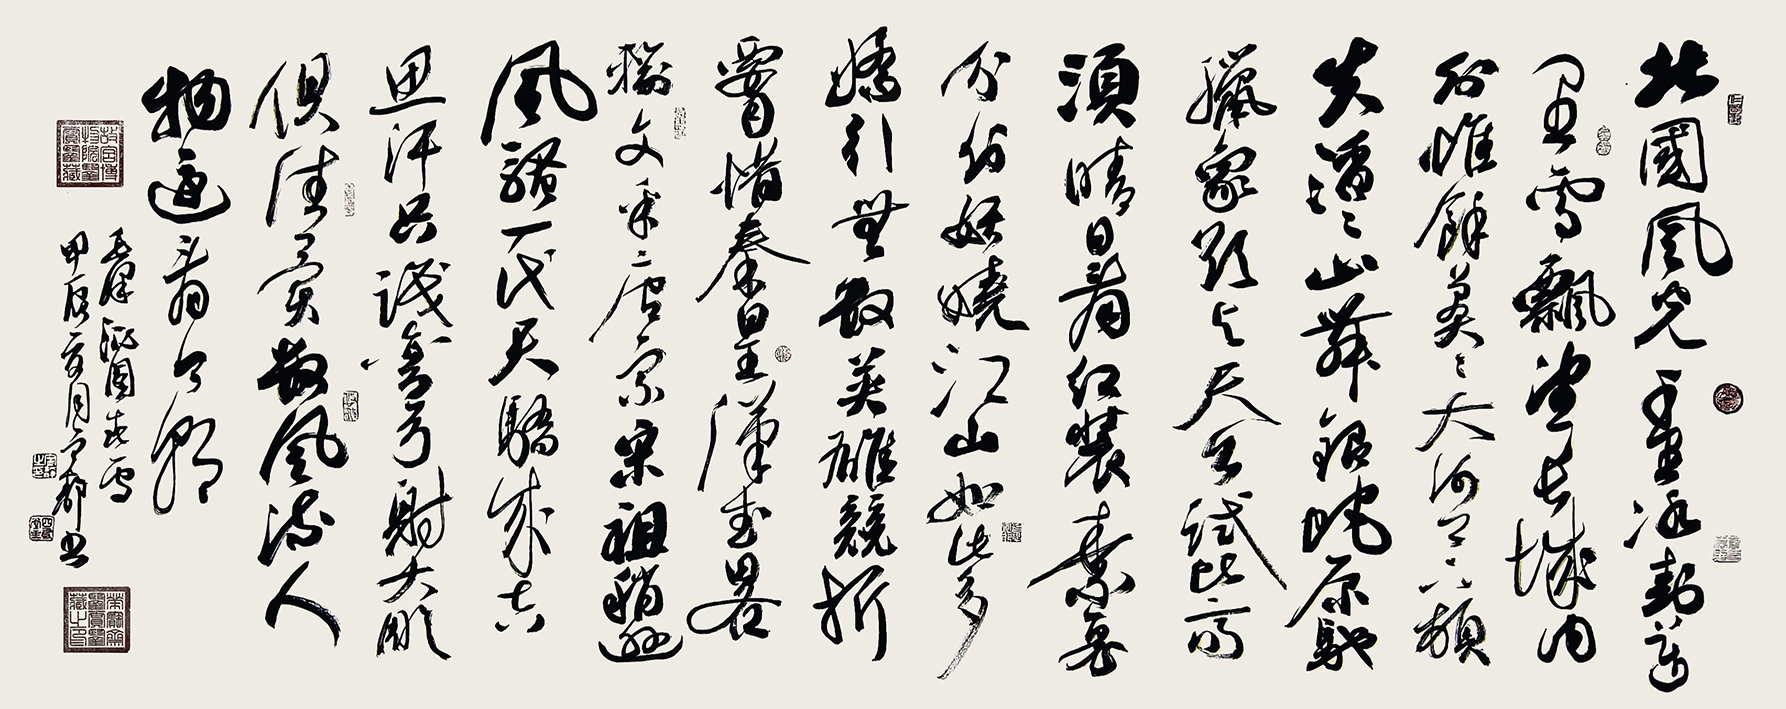 北國風光千里冰封萬
里雪飄望長城內
外惟餘莽々大河上下頓
失滔々山舞銀蛇原馳
蠟象欲與天公試比高
須晴日看紅裝素裹
分外妖嬈江山如此多
嬌引無數英雄競折
腰惜秦皇漢武略
輸文采唐宗宋祖稍遜
風騷一代天驕成吉
思汗只識彎弓射大雕
俱往矣數風流人
物還看今朝
毛澤沁園春雪
甲辰月都書
故宮博物院鑒賞璽藏
榮寶齋鑒賞璽藏之印